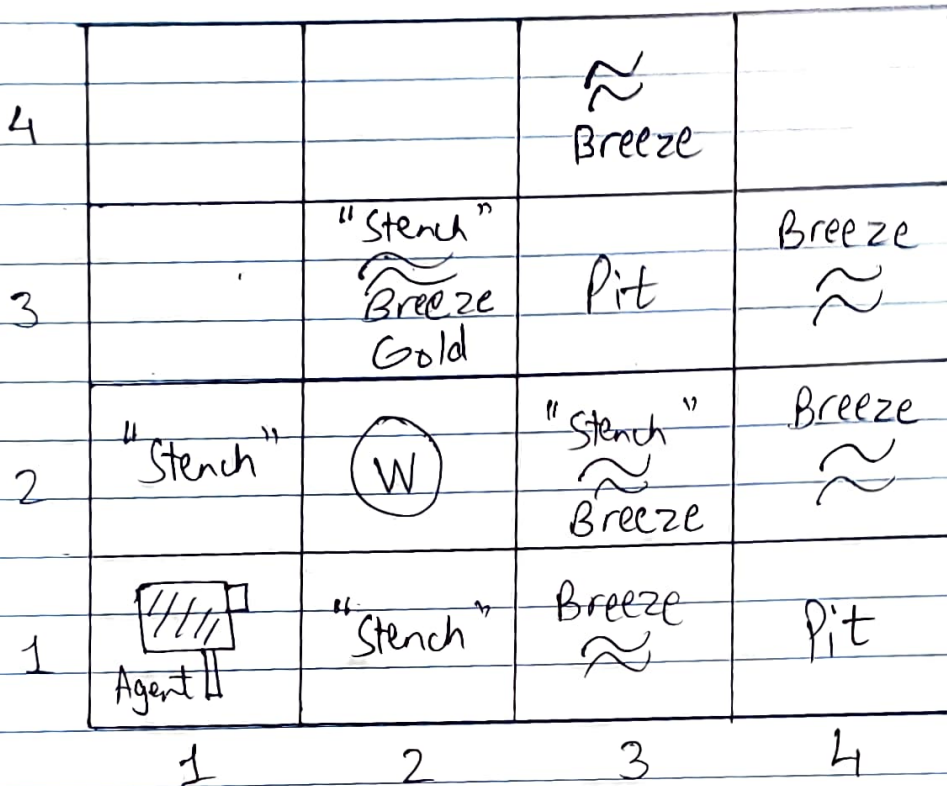 4
Breeze
3
"Stench"
Breeze
Gold
Pit
Breeze
2
"Stench"
W
"Stench"
Breeze
Breeze
1
Agent
"Stench"
Breeze
Pit
1 2 3 4